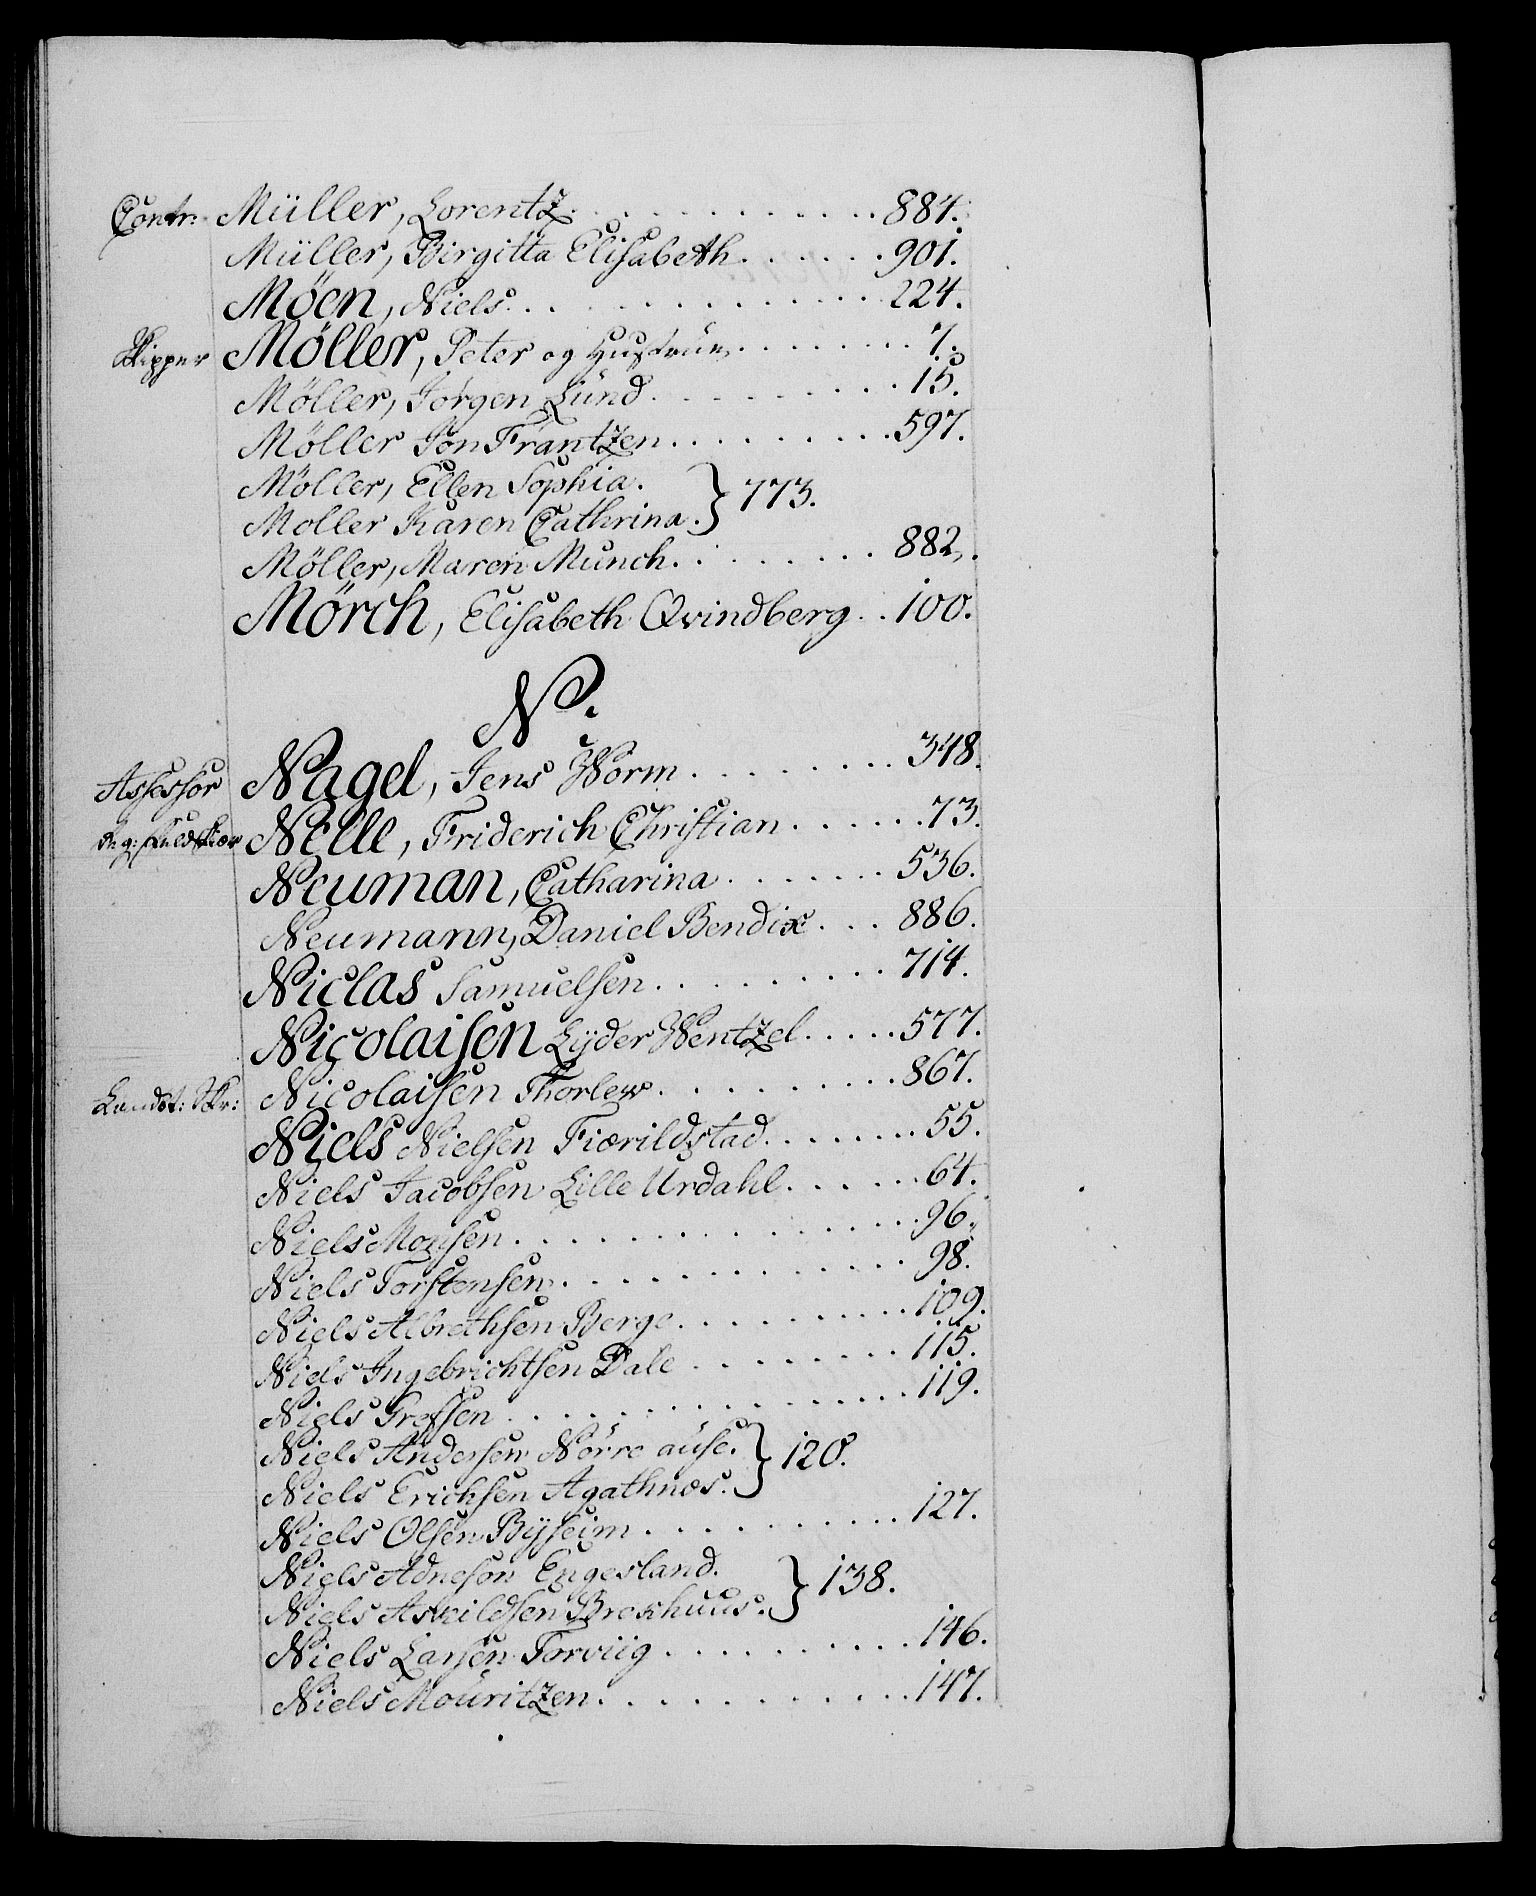 Contr: Müller, Lorentz . . . . . . . . . . . 884.
Müller, Birgitta Elisabeth . . . . . . 901.
Möen, Niels . . . . . . . . . . . . . . 224.
Skipper Möller, Peter og Hustrüe . . . . . . . . 7.
Möller, Jörgen Lund . . . . . . . . . 15.
Möller Jon Frantzen . . . . . . . . . 597.
Möller, Ellen Sophia. } 773.
Moller Karen Cathrina.
Möller, Maren Munch . . . . . . . . 882.
Mörch, Elisabeth Qvindberg . . 100.
N.
Assessor Nagel, Jens Worm . . . . . . . . . 348.
Nelle, Friderich Christian . . . . . . 73.
Neuman, Catharina . . . . . . . 536.
Neumann, Daniel Bendix . . . 886.
Niclas Samuelsen . . . . . . . . . 714.
Nicolaisen Lÿder Wentzel . . . . . 577.
Landst: Skr: Nicolaisen Thorlew . . . . . . . . . 867.
Niels Nielsen Fiærildstad . . . . . . . . 55.
Niels Jacobsen Lille Urdahl . . . . . . 64.
Niels Monsen . . . . . . . . . . . . . . 96.
Niels Torstensen . . . . . . . . . . . . . 98.
Niels Albrethsen Berge . . . . . . . . . . 109.
Niels Ingebrichtsen Dale . . . . . . . . . 115.
Niels Grefsen . . . . . . . . . . . . . . . 119.
Niels Andersen Nörre ause. } 120.
Niels Erichsen Agathnæs.
Niels Olsen Bÿseim . . . . . . . . . . 127.
Niels Adnesön Engesland. } 138.
Niels Askildsen Brekhuus.
Niels Larsen Torviig . . . . . . . . . . 146.
Niels Mouritzen . . . . . . . . . . . . 147.